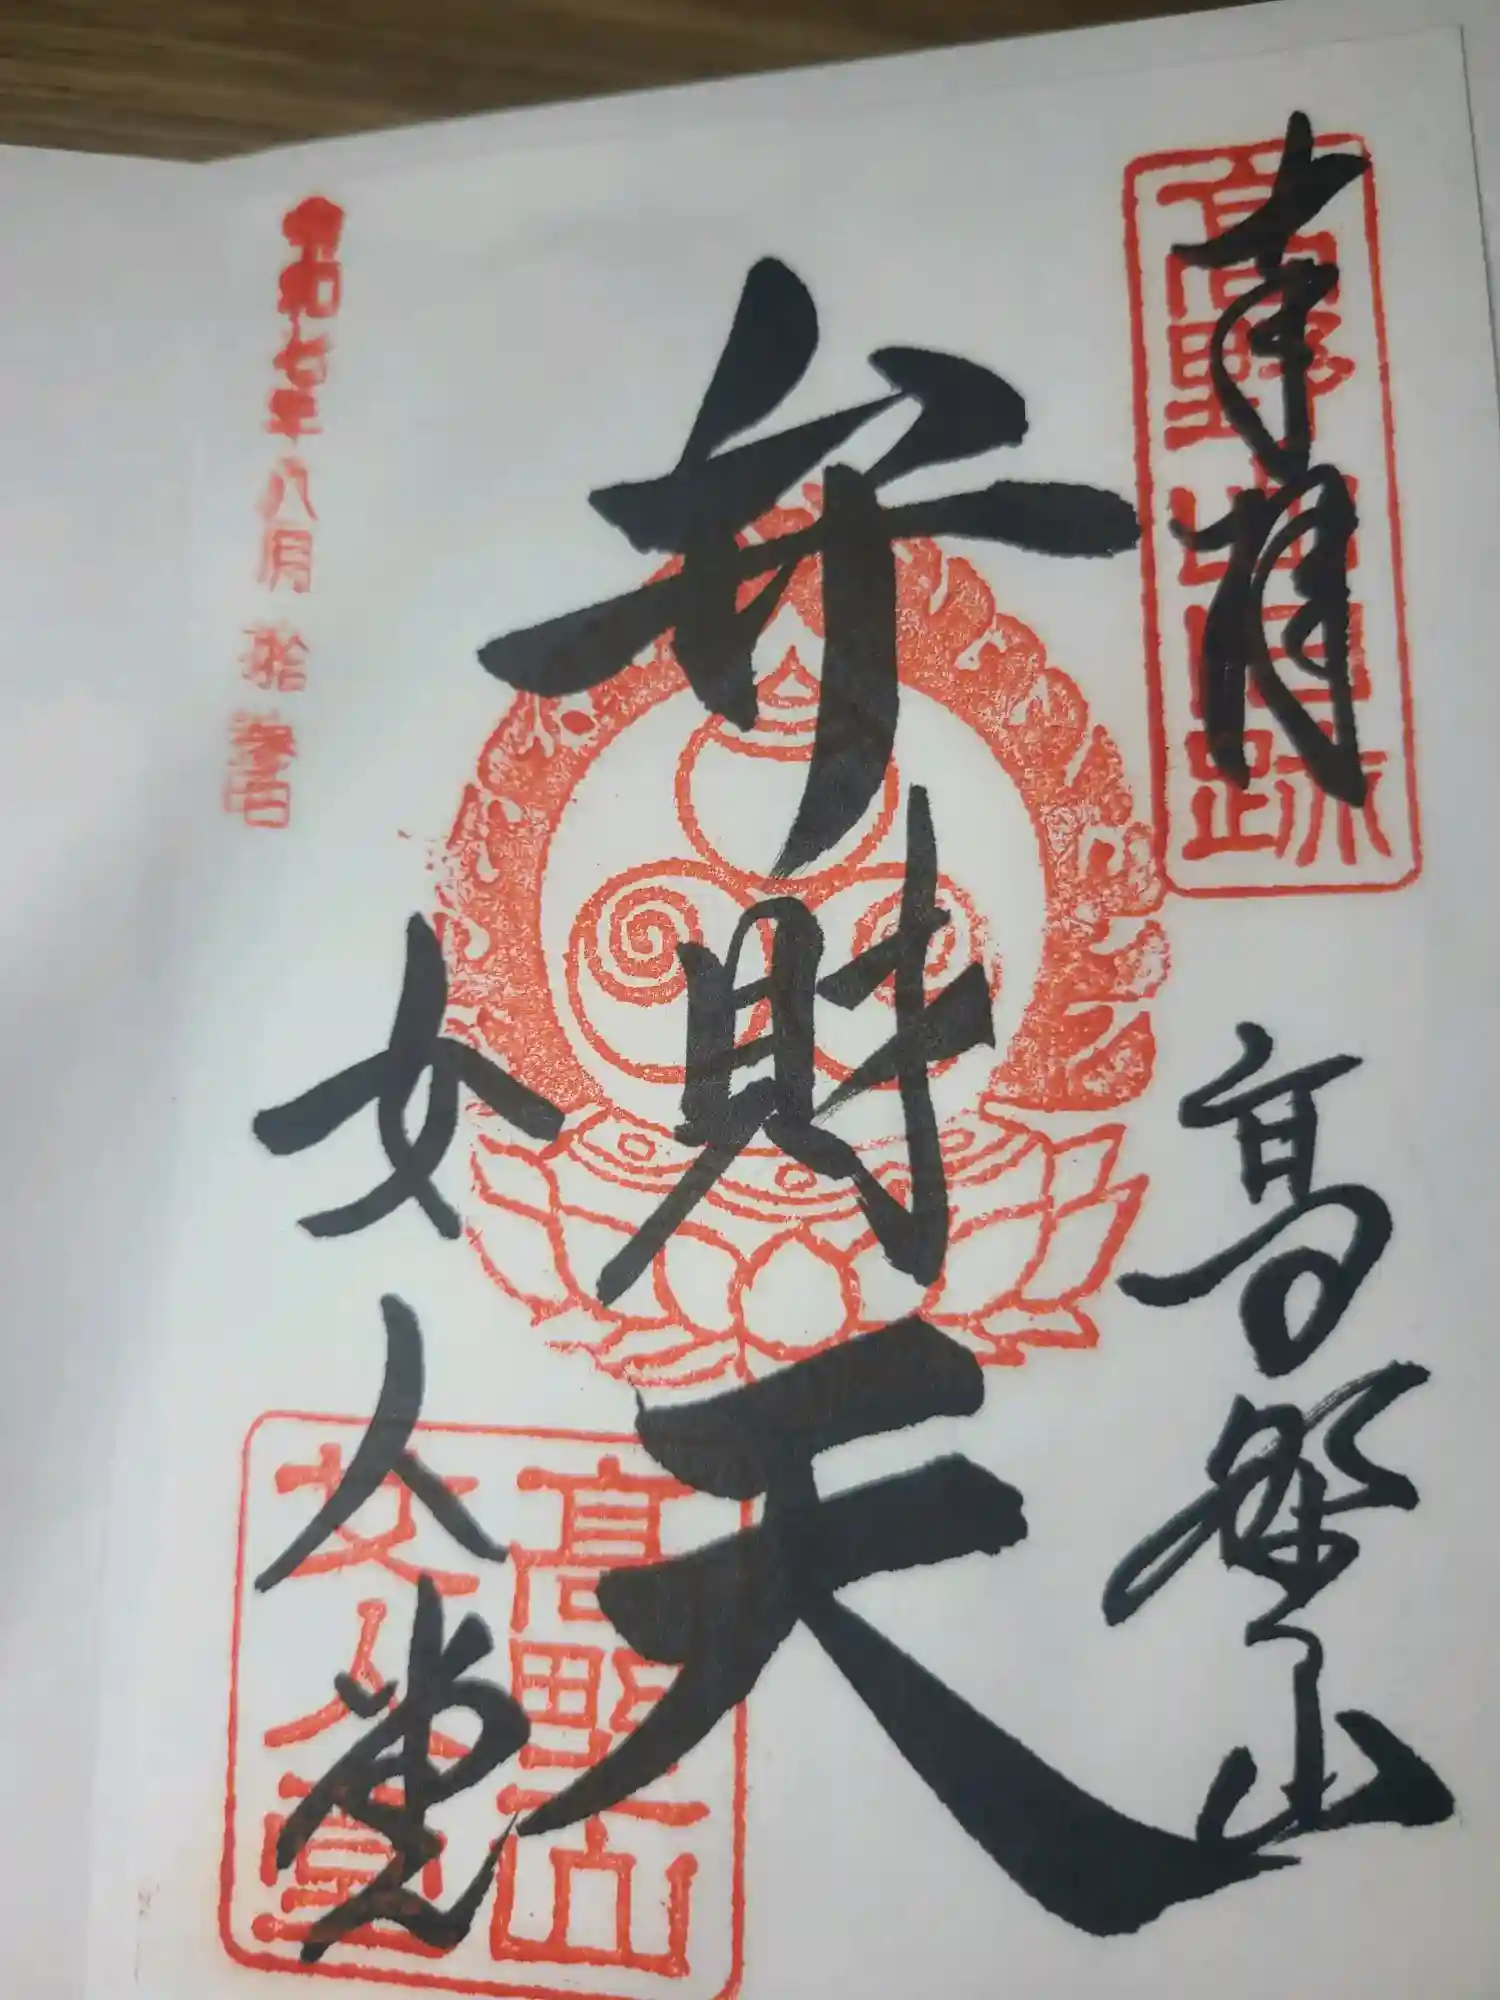 奉拝
高野山旧跡
高野山
弁財天
女人堂
高野山
女人堂
令和七年八月拾日